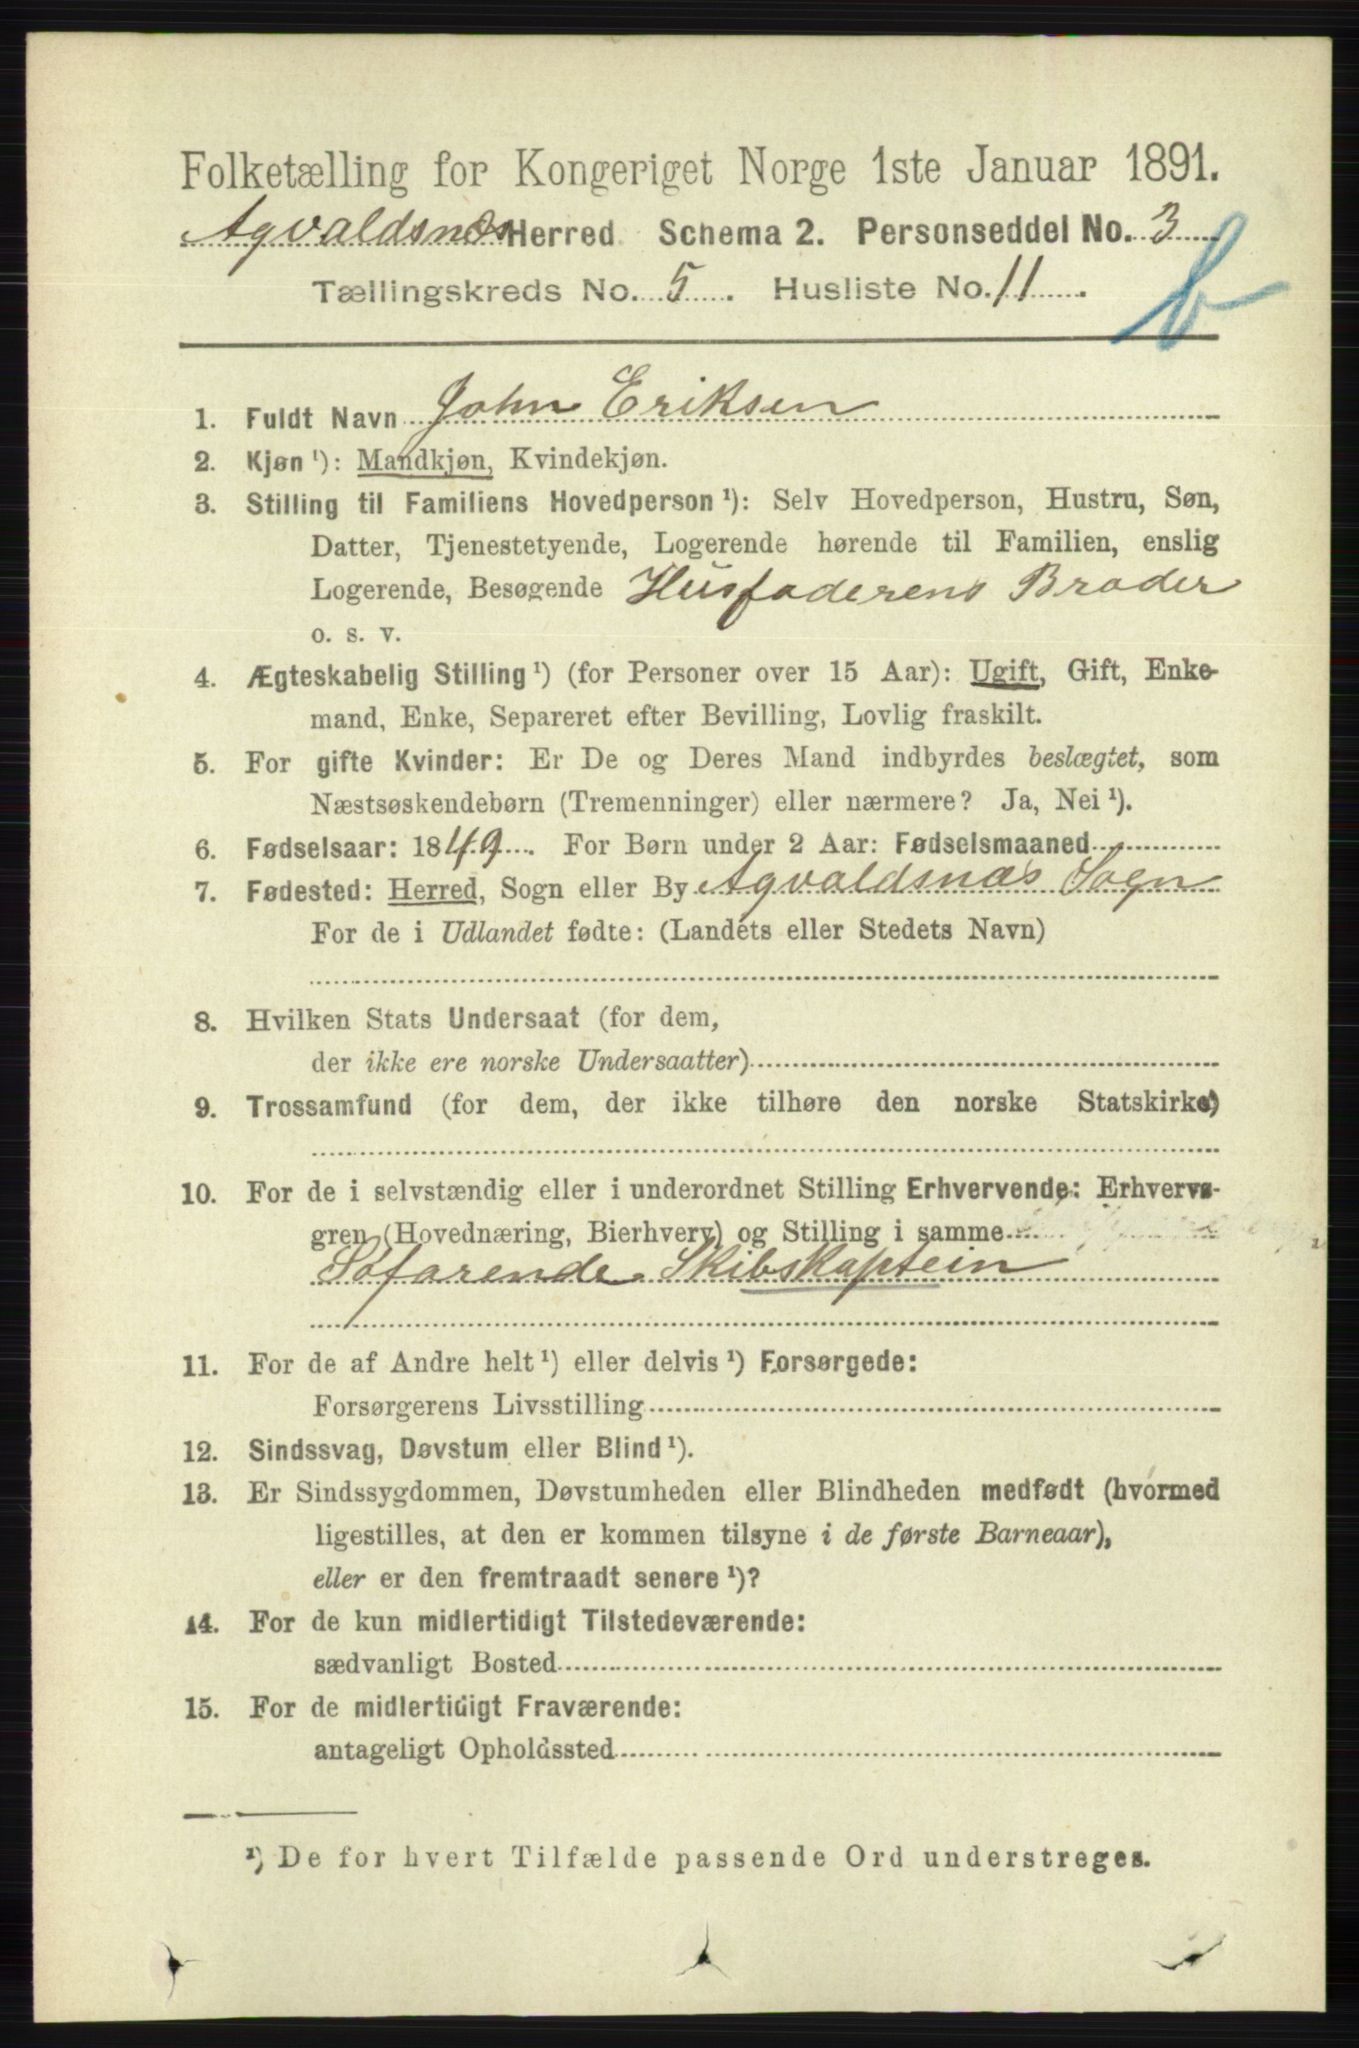 Folketælling for Kongeriget Norge 1ste Januar 1891.
Agvaldsnæs Herred Schema 2. Personseddel No. 3
Tællingskreds No. 5. Husliste No. 11.
b
1. Fuldt Navn John Eriksen
2. Kjøn ¹): Mandkjøn, Kvindekjøn.
3. Stilling til Familiens Hovedperson ¹): Selv Hovedperson, Hustru, Søn,
Datter, Tjenestetyende, Logerende hørende til Familien, enslig
Logerende, Besøgende Husfaderens Broder
o. s. v.
4. Ægteskabelig Stilling ¹) (for Personer over 15 Aar): Ugift, Gift, Enke-
mand, Enke, Separeret efter Bevilling, Lovlig fraskilt.
5. For gifte Kvinder: Er De og Deres Mand indbyrdes beslægtet, som
Næstsøskendebørn (Tremenninger) eller nærmere? Ja, Nei ¹).
6. Fødselsaar: 1849. For Børn under 2 Aar: Fødselsmaaned
7. Fødested: Herred, Sogn eller By Agvaldsnæs Sogn
For de i Udlandet fødte: (Landets eller Stedets Navn)
8. Hvilken Stats Undersaat (for dem,
der ikke ere norske Undersaatter)
9. Trossamfund (for dem, der ikke tilhøre den norske Statskirke)
10. For de i selvstændig eller i underordnet Stilling Erhvervende: Erhvervs-
gren (Hovednæring, Bierhverv) og Stilling i samme
Søfarende. Skibskaptein
11. For de af Andre helt ¹) eller delvis ¹) Forsørgede:
Forsørgerens Livsstilling
12. Sindssvag, Døvstum eller Blind ¹).
13. Er Sindssygdommen, Døvstumheden eller Blindheden medfødt (hvormed
ligestilles, at den er kommen tilsyne i de første Barneaar),
eller er den fremtraadt senere ¹)?
14. For de kun midlertidigt Tilstedeværende:
sædvanligt Bosted
15. For de midlertidigt Fraværende:
antageligt Opholdssted
¹) De for hvert Tilfælde passende Ord understreges.